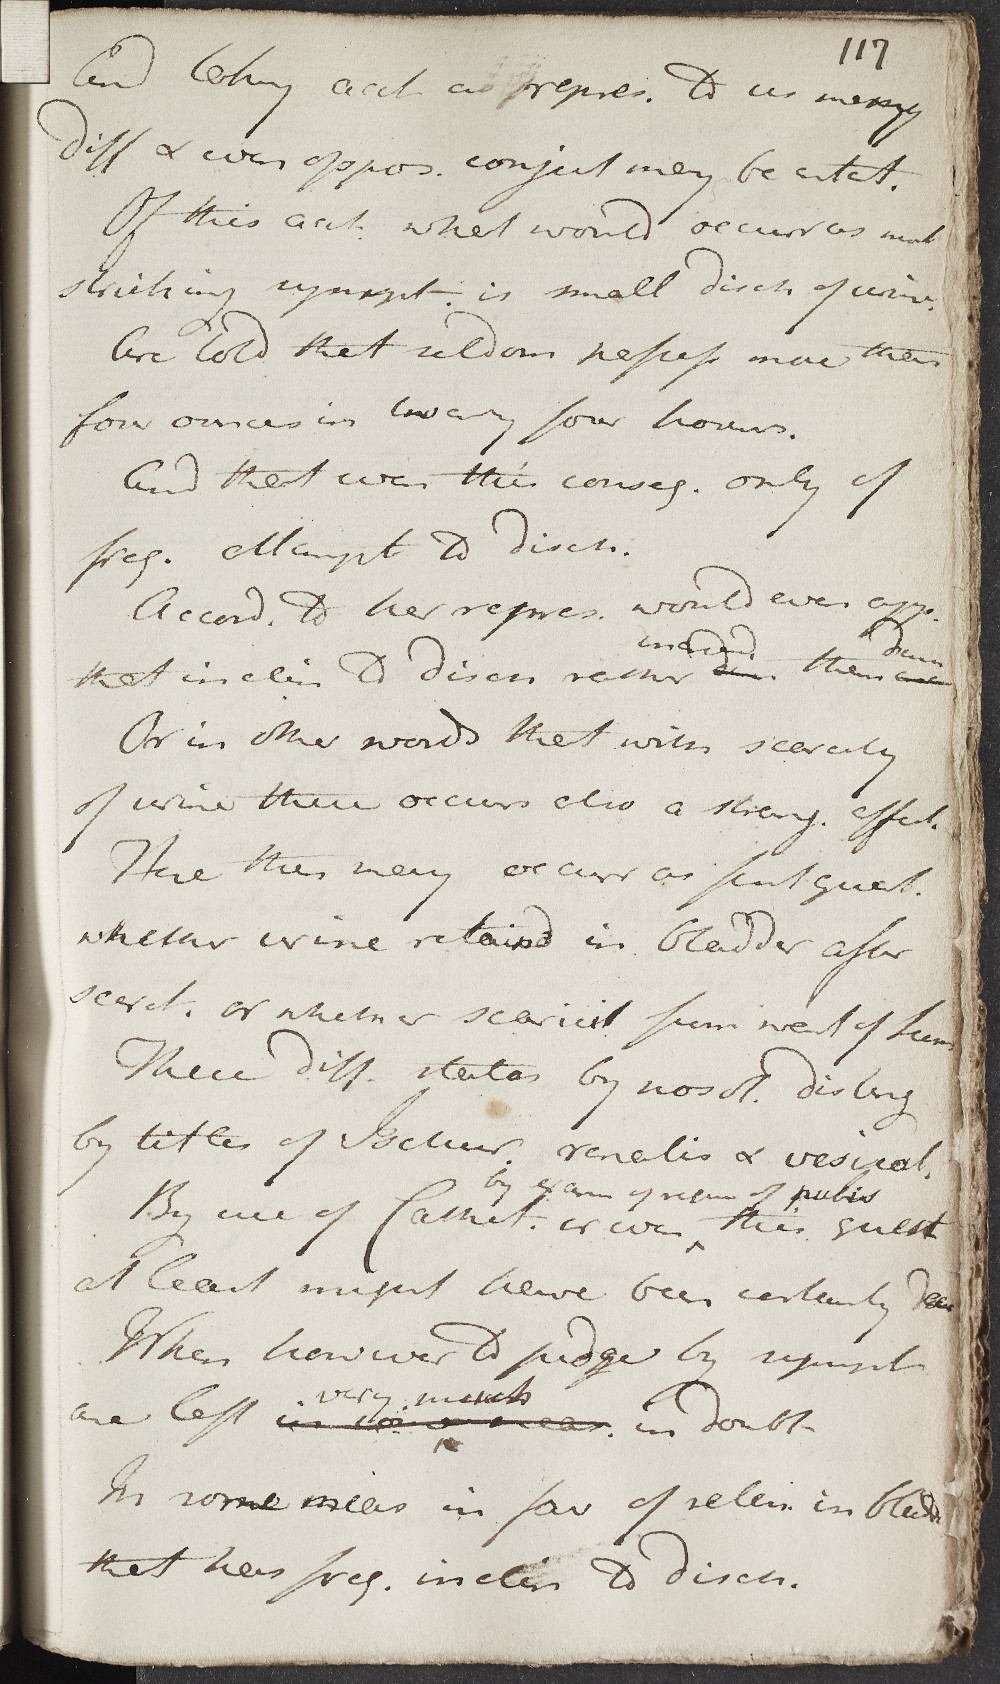 117
And taking acct as repres. to us many
diff & even oppos. conject may be entert.
Of this acct. what would occurr as most
striking sympt. is small disch of urine.
Are told that seldom passes more than
four ounces in twenty four hours.
And that even this conseq. only of
freq. attempt to disch.
Accord. to her repres. would even app.
that inclin to disch rather increasd than dimin
Or in other words that with scarcity
of urine there occurs also a strang. affect.
Here then may occurr as first quest.
whether urine retaind in bladder after
secret. or whether scarcity from want of
These diff. states by nosol. disting
by titles of Ischur. renalis & vesical.
By use of Cathet. or even by exam of region of pubis this quest
at least might have been certainly
When however to judge by sympt
are left very much in doubt
In some meas in fav of reten in bladder
that has freq. inclin to disch.